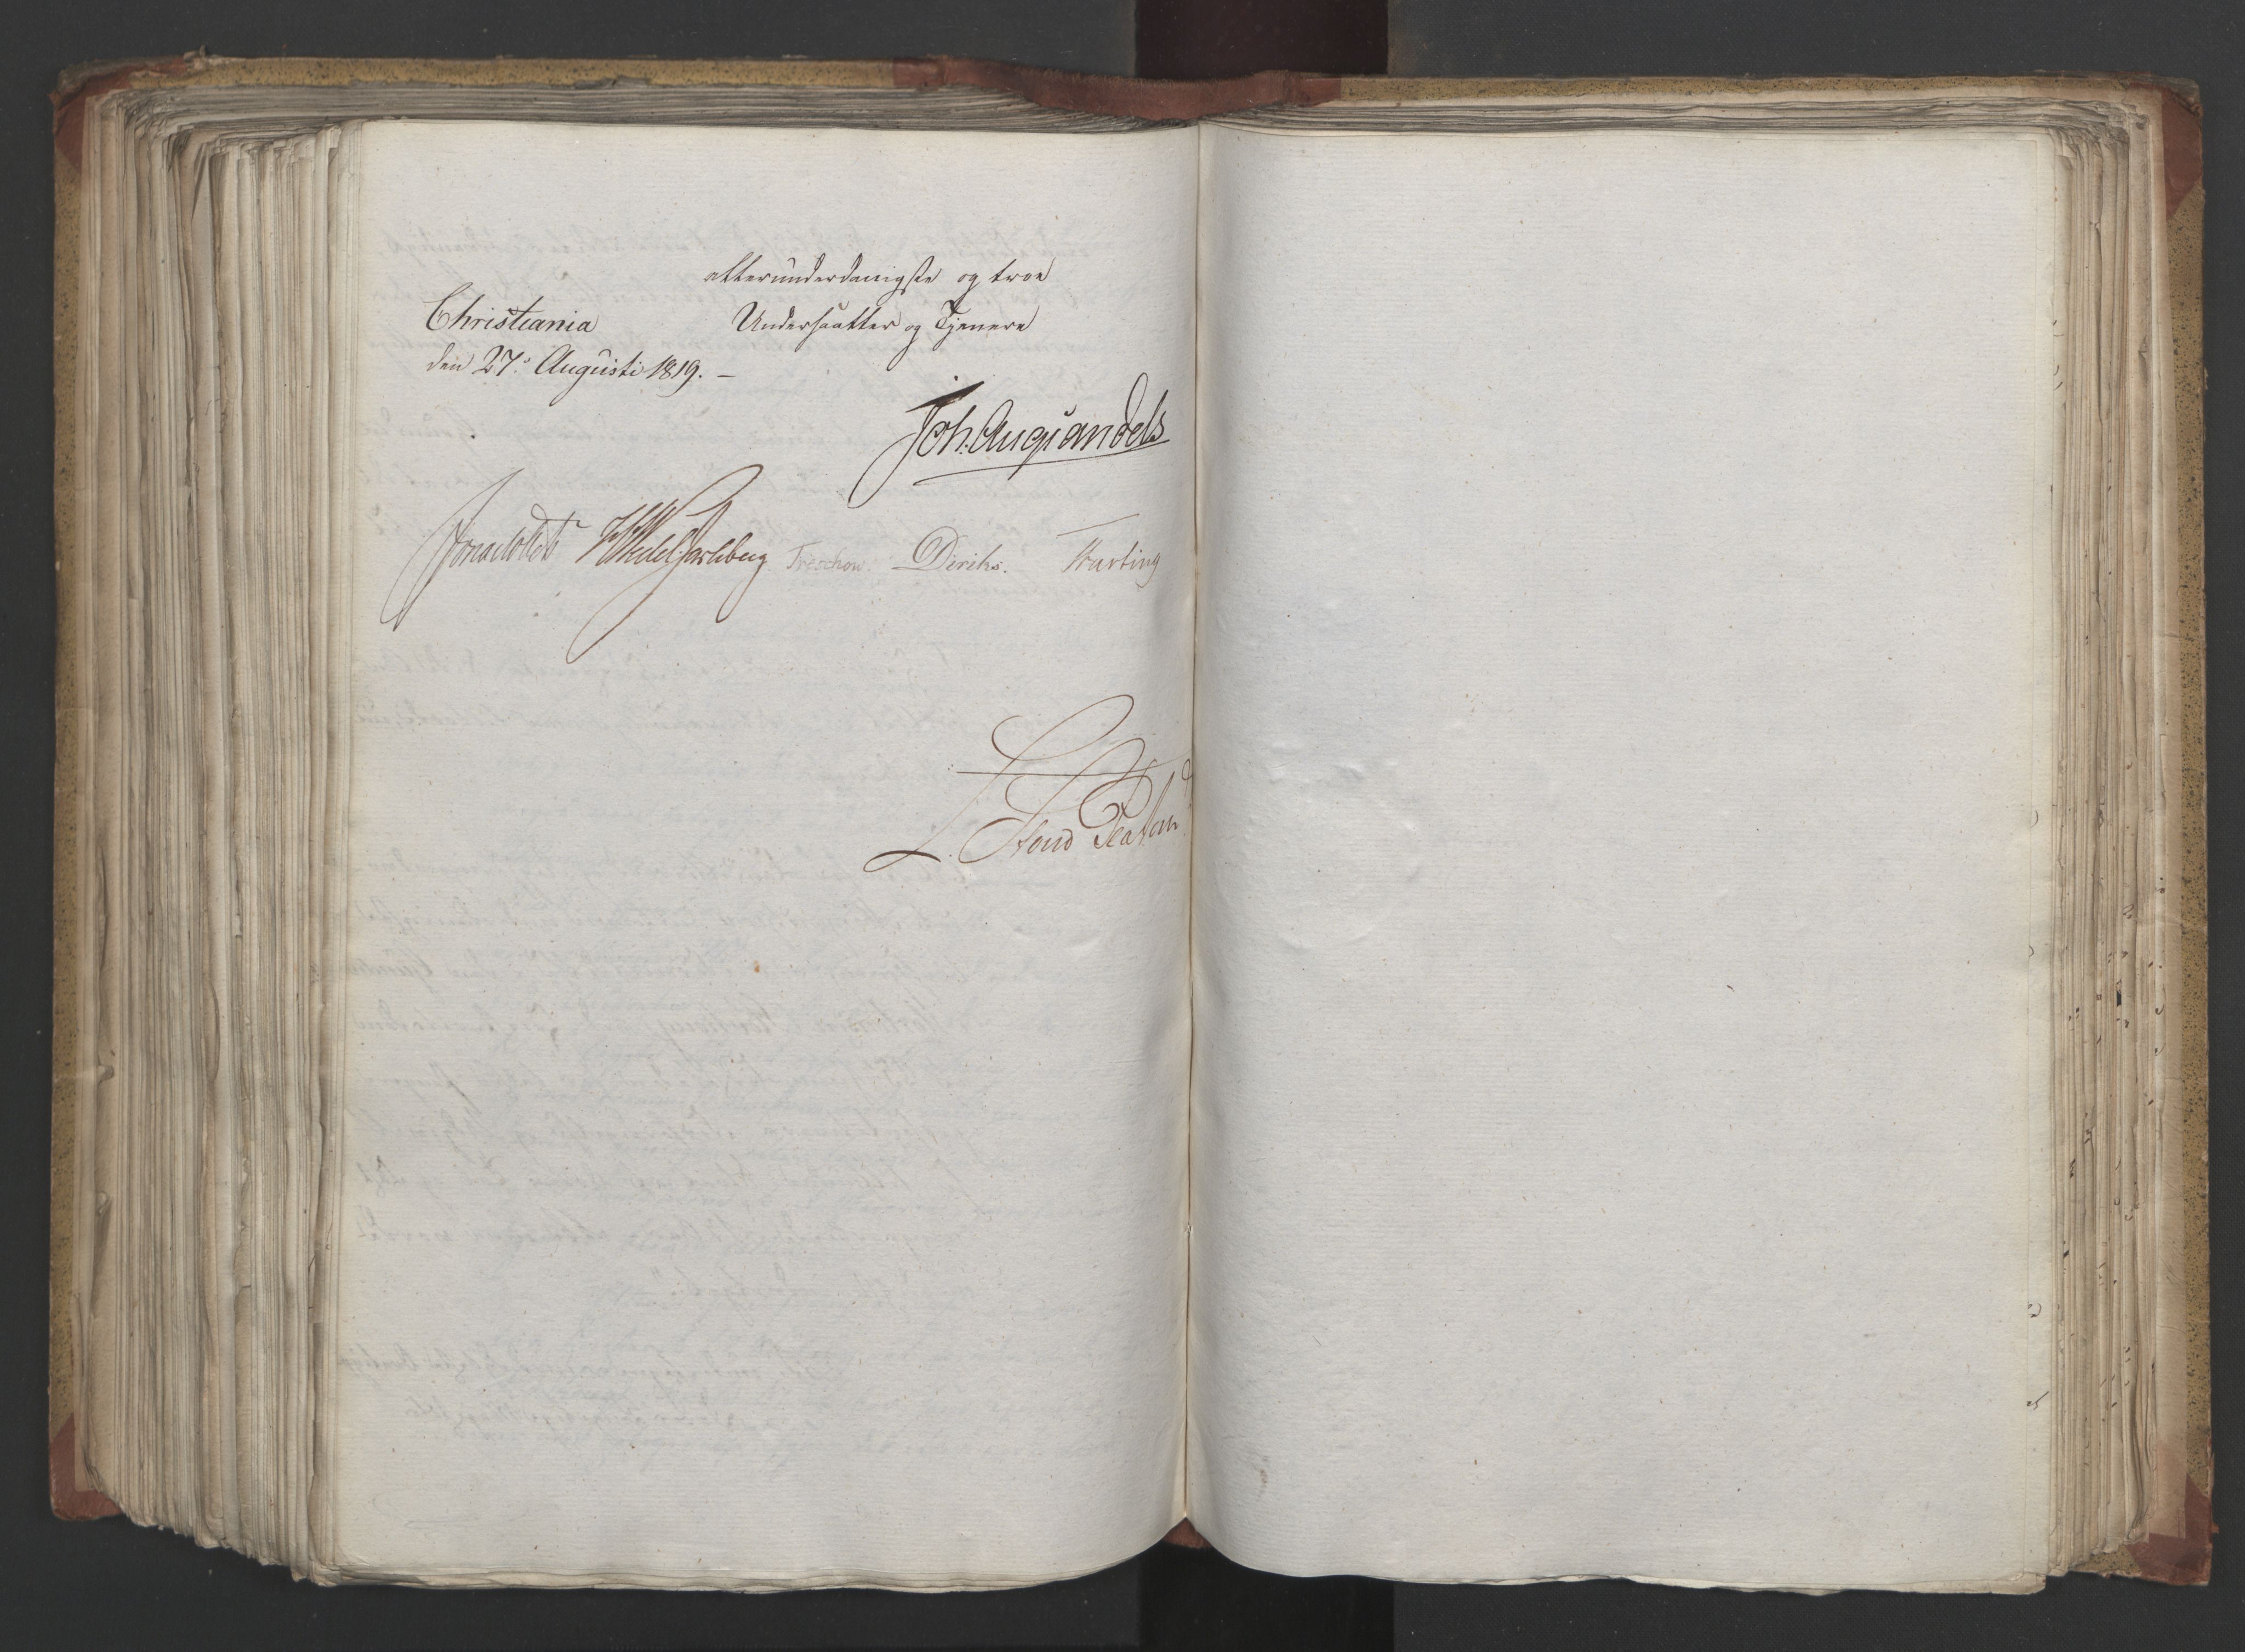 allerunderdanigste og troe
Christiania Undersaatter og Tjenere
den 27: Augusti 1819. –
Joh. Aug. Sandels
Jonas Collett HWedel Jarlsberg Treschow. Diriks. Fasting
L. Stoud Platou